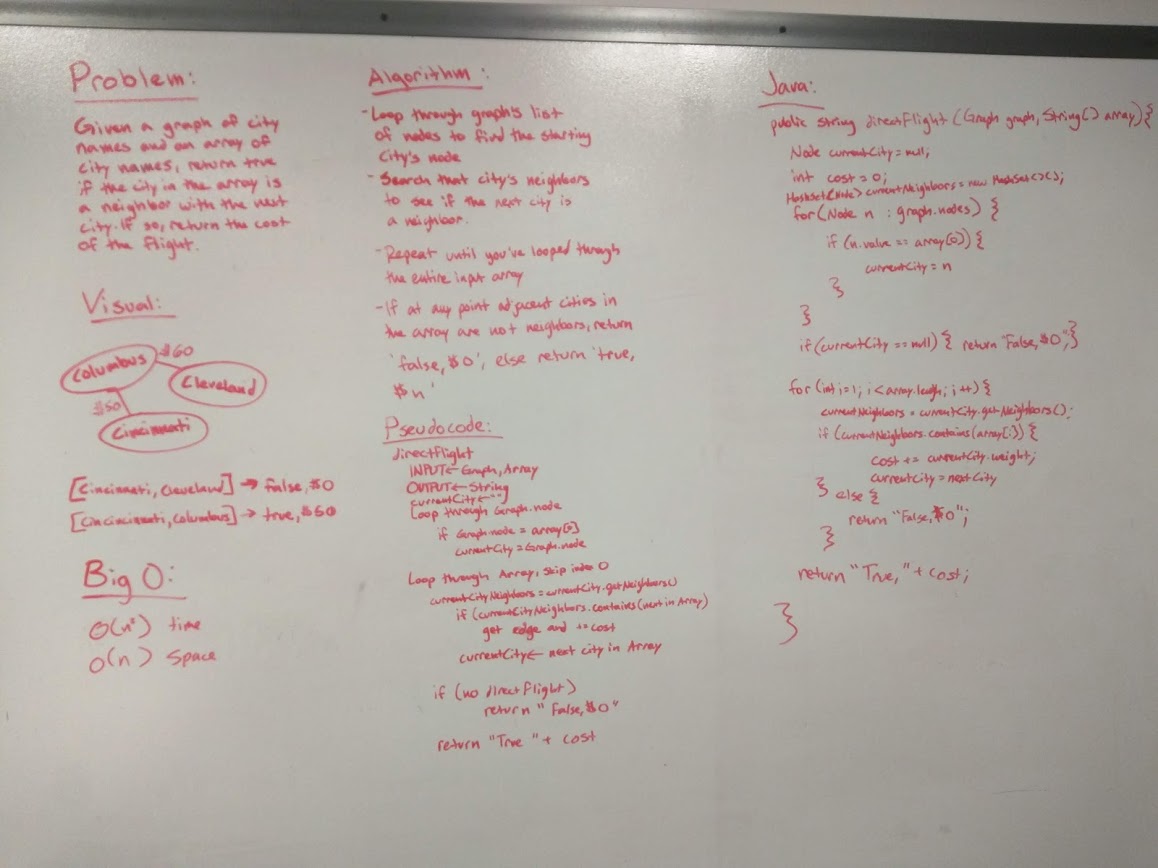 Problem:
Given a graph of city
names and an array of
city names, return true
if the city in the array is
a neighbor with the next
city. If so, return the cost
of the flight.
Visual:
Columbus
$60
Cleveland
$50
Cincinnati
[Cincinnati, Cleveland] → false, $0
[Cincicinnati, Columbus] → true, $50
Big O:
O(n²) time
O(n) Space
Algorithm:
- Loop through graph's list
of nodes to find the starting
City's node
- Search that city's neighbors
to see if the next city is
a neighbor.
- Repeat until you've looped through
the entire input array
- If at any point adjacent cities in
the array are not neighbors, return
'false, $0', else return 'true,
$n'
Pseudocode:
directflight
INPUT ← Graph, Array
OUTPUT ← String
currentCity ← ""
Loop through Graph.node
if Graph.node = array[0]
currentCity = Graph.node
Loop through Array, Skip index 0
currentCityNeighbors = currentCity.getNeighbors()
if (currentCityNeighbors.contains(next in Array)
get edge and += cost
currentCity ← next city in Array
if (no directflight)
return "False, $0"
return "True " + cost
Java:
public string directFlight (Graph graph, String[] array) {
Node currentCity = null;
int cost = 0;
HashSet<Node> currentNeighbors = new HashSet<>();
for (Node n : graph.nodes) {
if (n.value == array[0]) {
currentCity = n
}
}
if (currentCity == null) { return "False, $0"; }
for (int i = 1; i < array.length; i++) {
currentNeighbors = currentCity.getNeighbors();
if (currentNeighbors.contains(array[i]) {
cost += currentCity.weight;
currentCity = nextCity
} else {
return "False, $0";
}
return "True, " + cost;
}